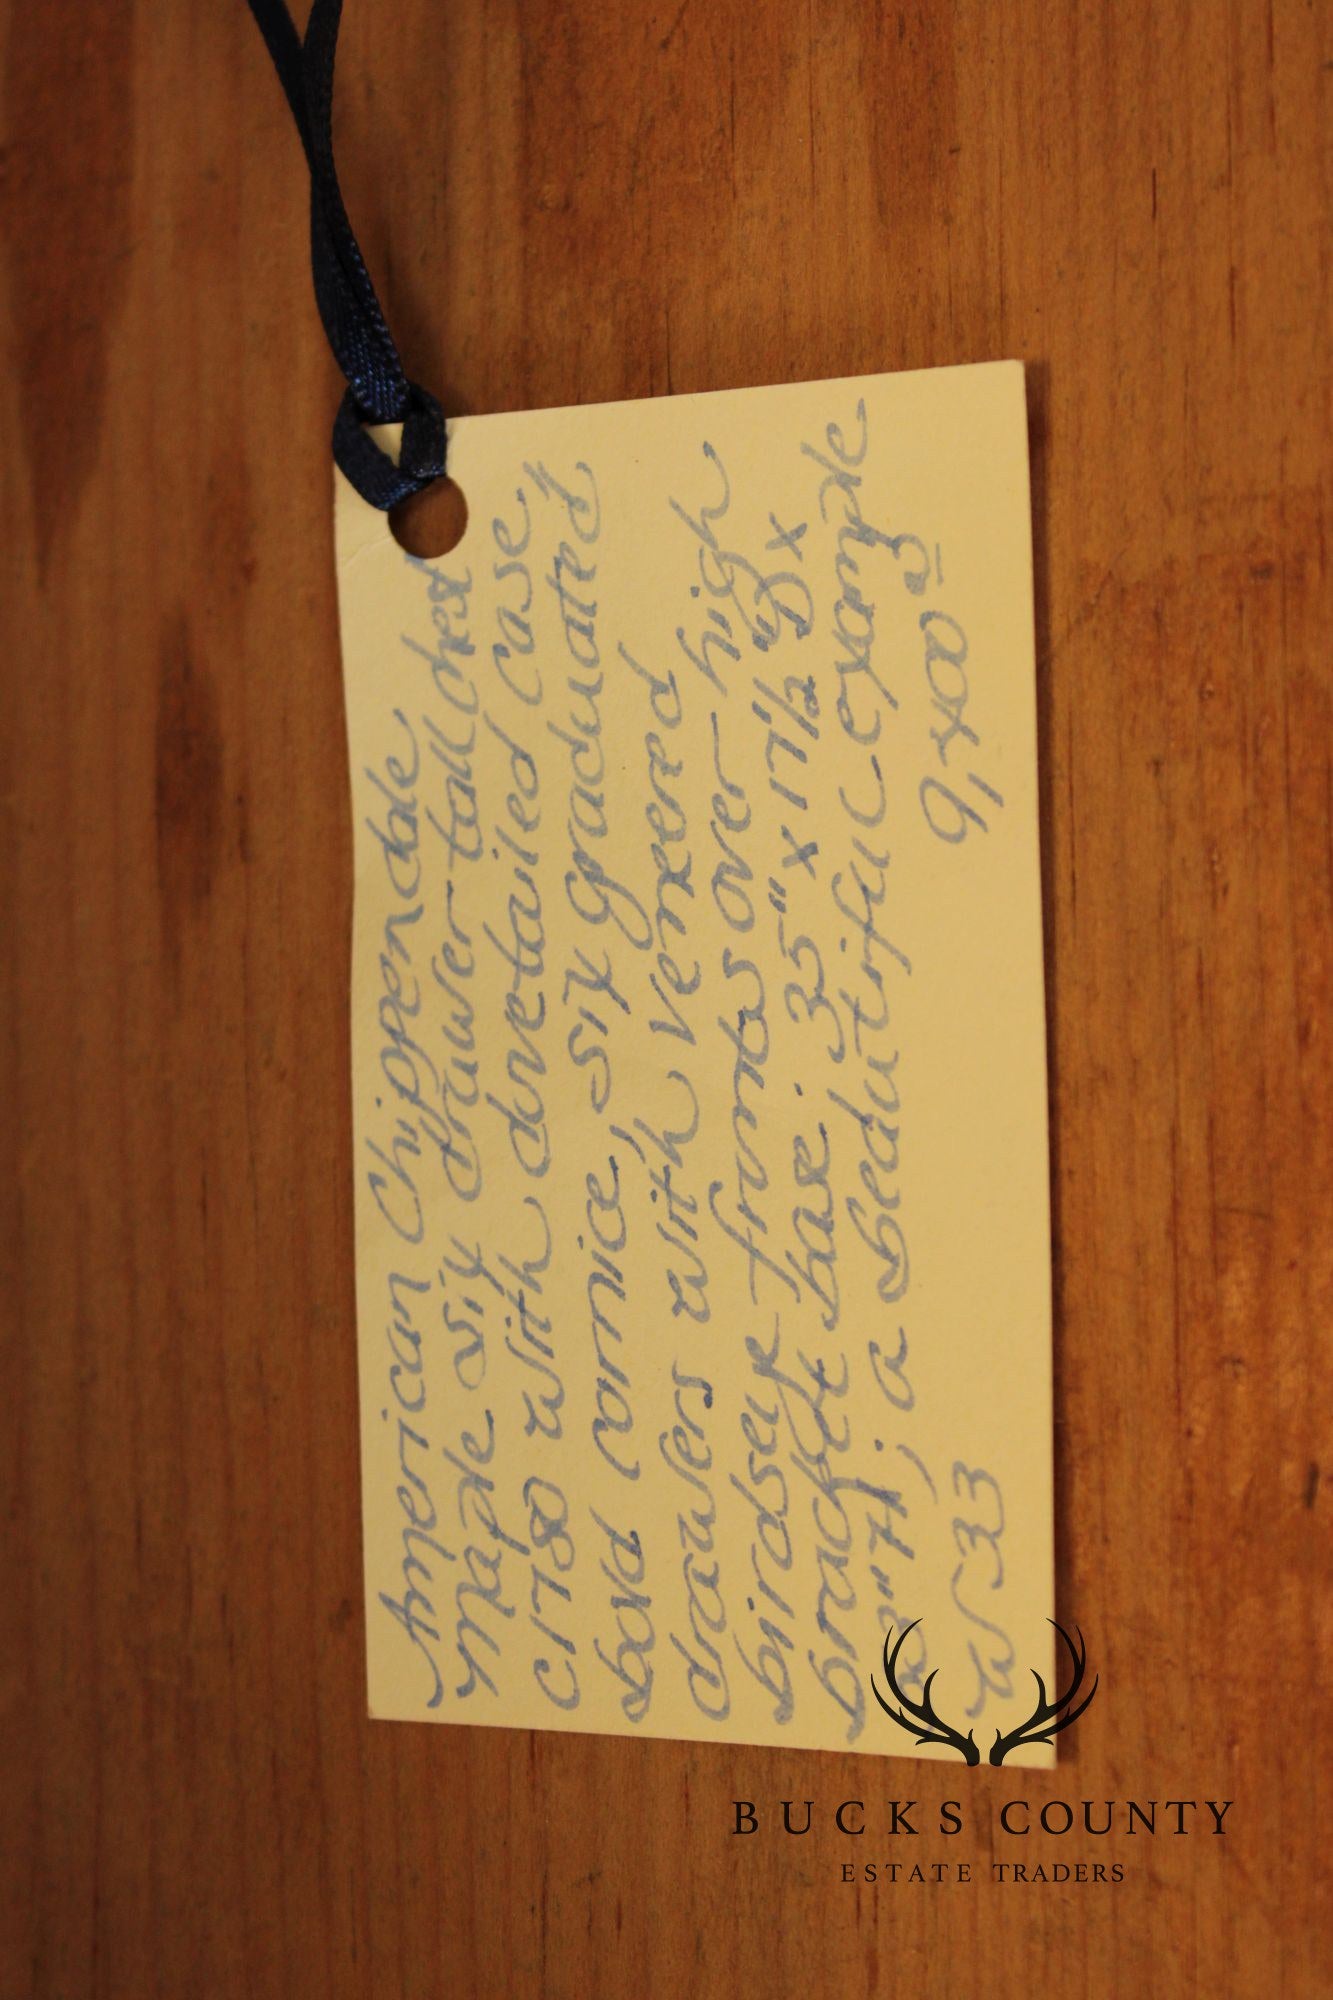 American Chippendale
maple six drawer tall chest
c1780 with dovetailed case,
bold cornice, six graduated
drawers with veneered
birdseye fronts over high
bracket base. 35" x 17 1/2 "D x
"H; a beautiful example
W33 9,400
BUCKS COUNTY
ESTATE TRADERS